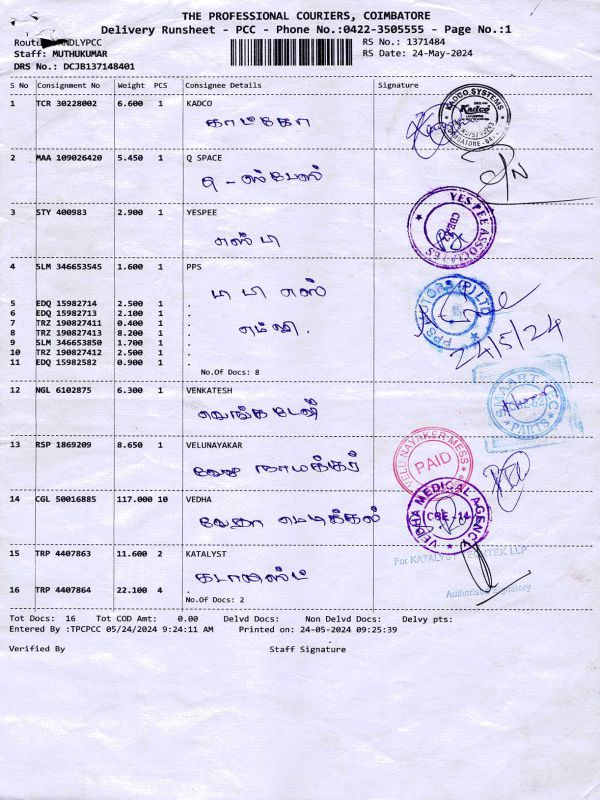 THE PROFESSIONAL COURIERS, COIMBATORE
Delivery Runsheet - PCC - Phone No.:0422-3505555 - Page No.:1
RS No.: 1371484
Staff: MUTHUKUMAR RS Date: 24-May-2024
DRS No.: DCJB137148401
S No Consignment No Weight PCS Consignee Details Signature
1 TCR 30228002 6.600 1 KADCO
காட்கோ
KADCO SYSTEMS
Kadco
2 MAA 109026420 5.450 1 Q SPACE
கு - ஸ்பேஸ்
3 STY 400983 2.900 1 YESPEE
எஸ் பி
YES PEE ASSOCIATES
4 SLM 346653545 1.600 1 PPS
பி பி எஸ்
PPS MOTORS (P) LTD
5 EDQ 15982714 2.500 1 .
6 EDQ 15982713 2.100 1 .
7 TRZ 190827411 0.400 1 .
8 TRZ 190827413 8.200 1 .
9 SLM 346653850 1.700 1 .
10 TRZ 190827412 2.500 1 .
11 EDQ 15982582 0.900 1 .
24/5/24
No.Of Docs: 8
12 NGL 6102875 6.300 1 VENKATESH
வெங்கடேஷ்
PARTS
13 RSP 1869209 8.650 1 VELUNAYAKAR
வேலு நாயக்கர்
VELU NAYAKER MESS
PAID
14 CGL 50016885 117.000 10 VEDHA
வேதா மெடிக்கல்
VEDHA MEDICAL AGENCY
CBE - 14
15 TRP 4407863 11.600 2 KATALYST
கடாலிஸ்ட்
For KATALYST TECHTEX LLP
16 TRP 4407864 22.100 4 .
Authorised Signatory
No.Of Docs: 2
Tot Docs: 16 Tot COD Amt: 0.00 Delvd Docs: Non Delvd Docs: Delvy pts:
Entered By :TPCPCC 05/24/2024 9:24:11 AM Printed on: 24-05-2024 09:25:39
Verified By Staff Signature